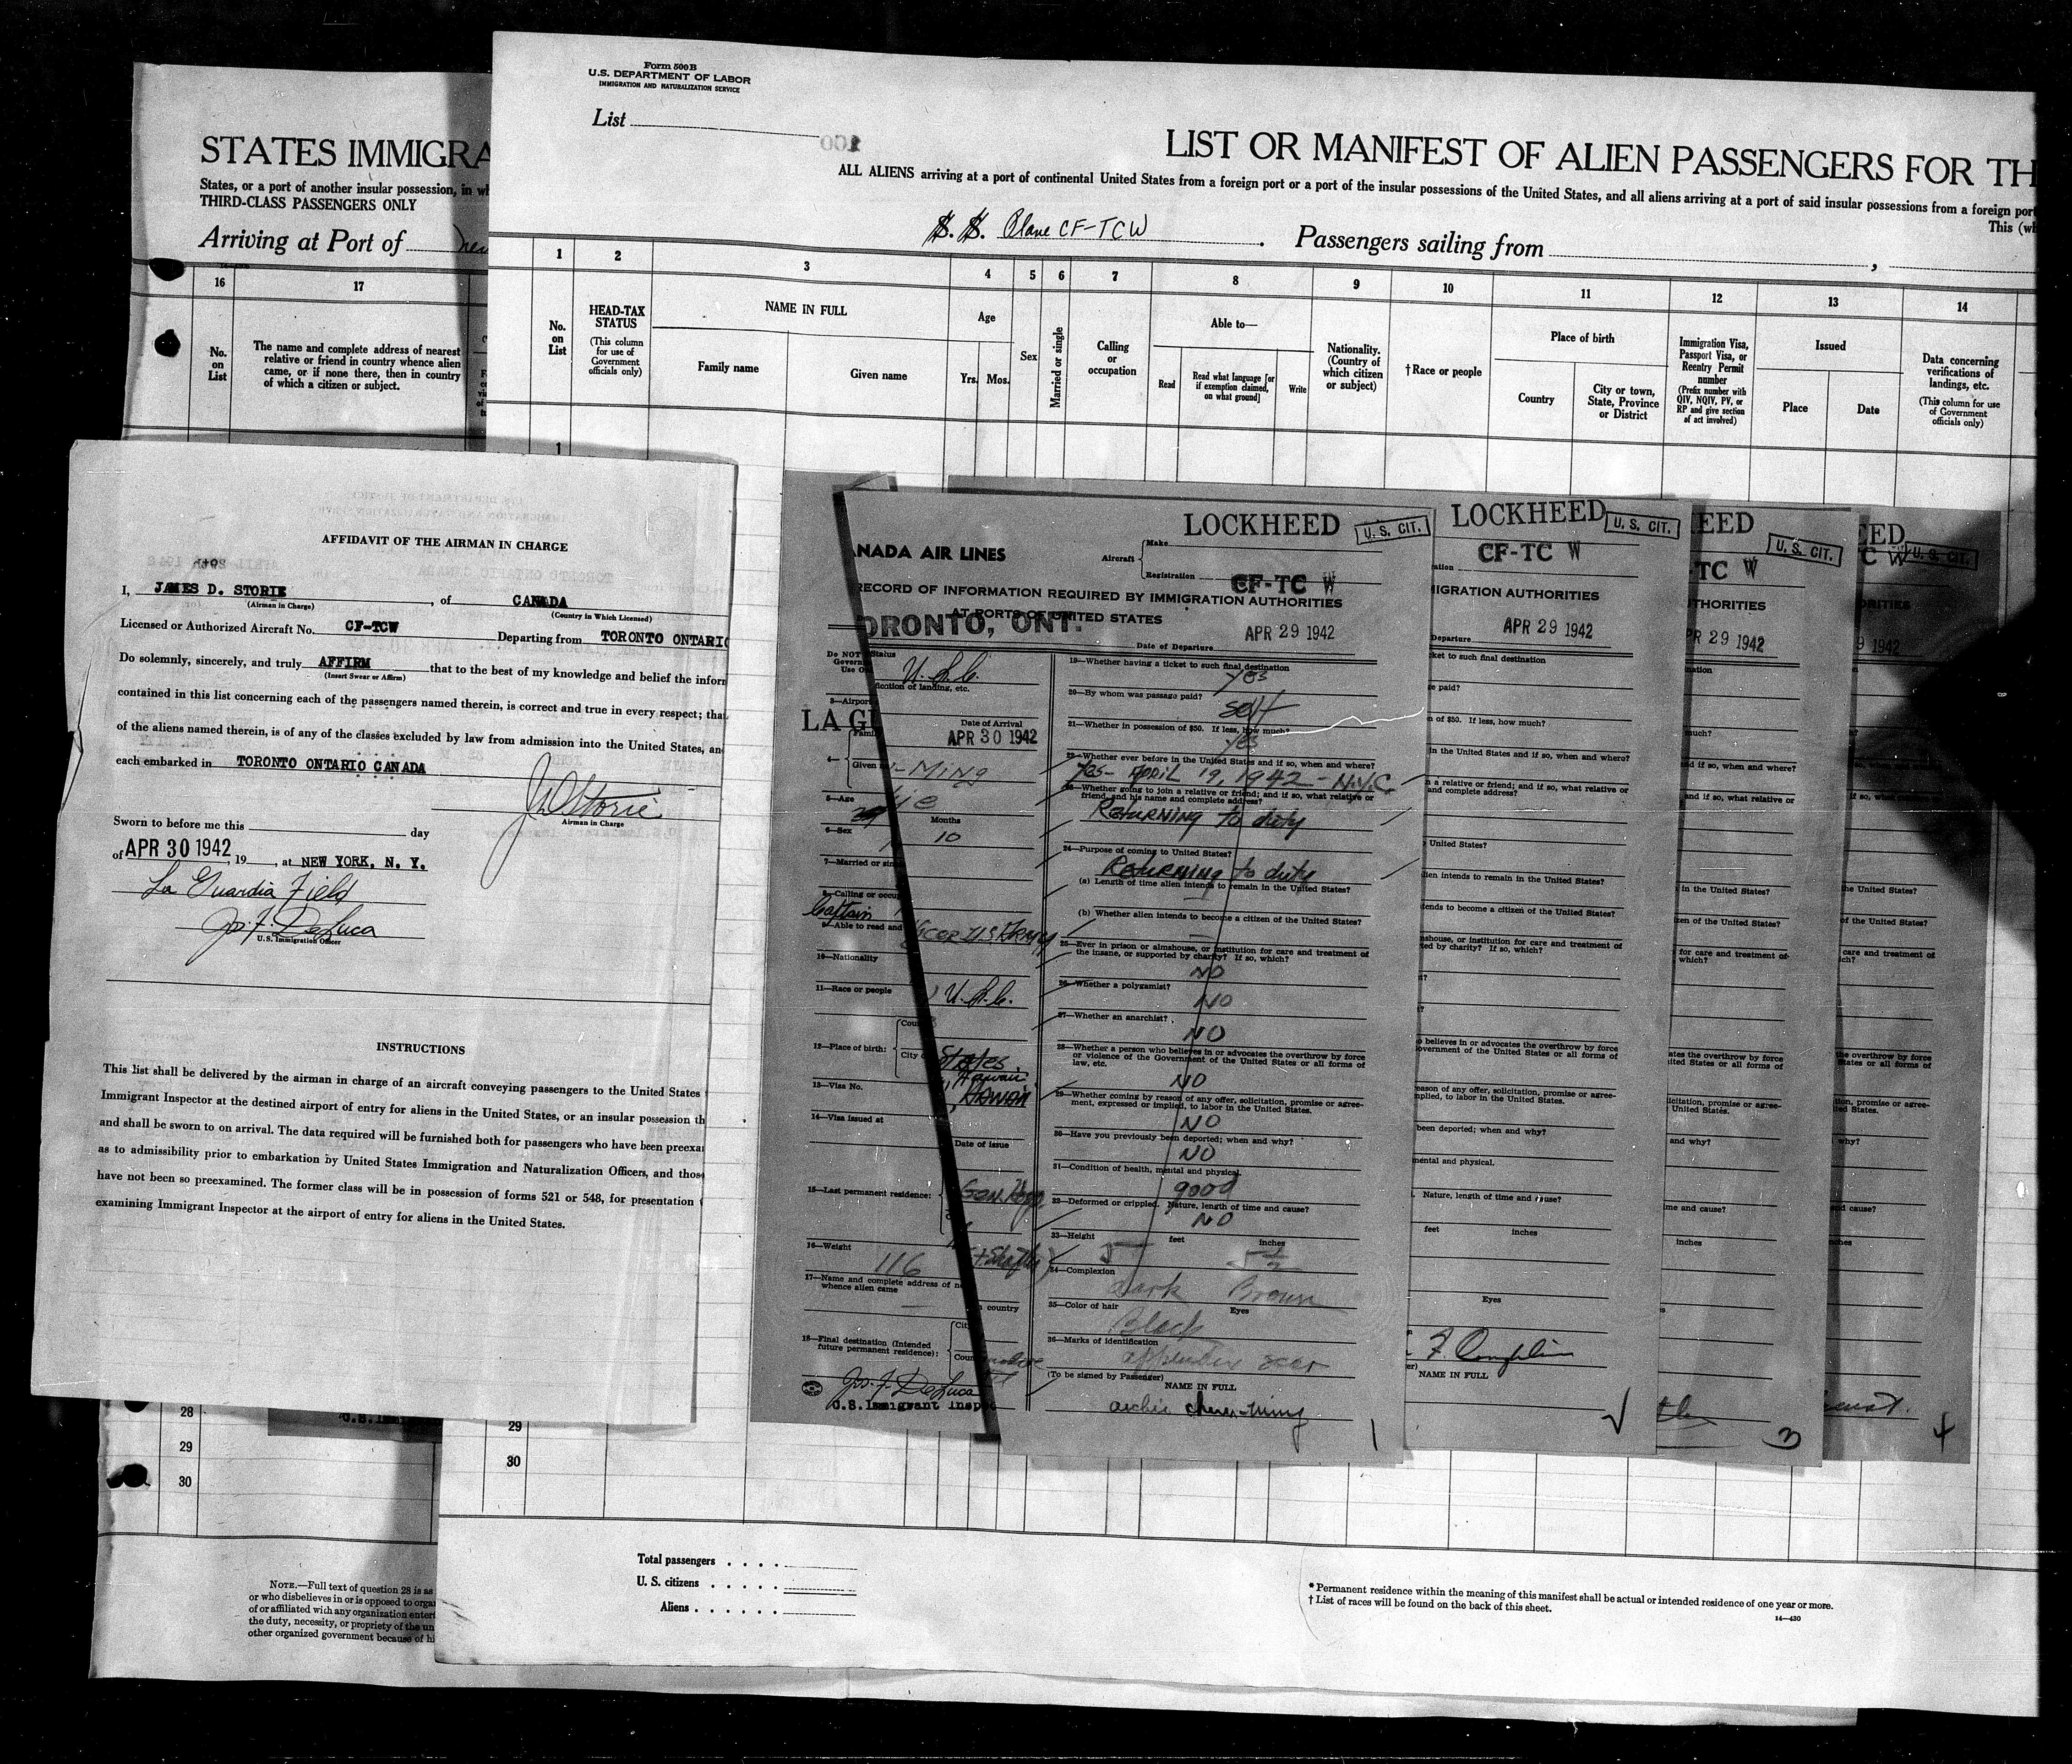 STATES IMMIGRA
States, or a port of another insular possession, in wh
THIRD-CLASS PASSENGERS ONLY
Arriving at Port of
16 17
No. on List
The name and complete address of nearest
relative or friend in country whence alien
came, or if none there, then in country
of which a citizen or subject.
Form 500 B
U.S. DEPARTMENT OF LABOR
IMMIGRATION AND NATURALIZATION SERVICE
List
100
LIST OR MANIFEST OF ALIEN PASSENGERS FOR TH
ALL ALIENS arriving at a port of continental United States from a foreign port or a port of the insular possessions of the United States, and all aliens arriving at a port of said insular possessions from a foreign port
This (wh
S. S. Plane CF-TCW . Passengers sailing from ,
1 2 3 4 5 6 7 8 9 10 11 12 13 14
No. on List
HEAD-TAX STATUS
(This column for use of Government officials only)
NAME IN FULL
Family name
Given name
Age
Yrs. Mos.
Sex
Married or single
Calling or occupation
Able to—
Read
Read what language [or if exemption claimed, on what ground]
Write
Nationality. (Country of which citizen or subject)
† Race or people
Place of birth
Country
City or town, State, Province or District
Immigration Visa, Passport Visa, or Reentry Permit number
(Prefix number with QIV, NQIV, PV, or RP and give section of act involved)
Issued
Place
Date
Data concerning verifications of landings, etc.
(This column for use of Government officials only)
1
AFFIDAVIT OF THE AIRMAN IN CHARGE
I, JAMES D. STORIE, of CANADA
(Airman in Charge) (Country in Which Licensed)
Licensed or Authorized Aircraft No. CF-TCW Departing from TORONTO ONTARIO
Do solemnly, sincerely, and truly AFFIRM that to the best of my knowledge and belief the inform
(Insert Swear or Affirm)
contained in this list concerning each of the passengers named therein, is correct and true in every respect; that
of the aliens named therein, is of any of the classes excluded by law from admission into the United States, and
each embarked in TORONTO ONTARIO CANADA
J D Storie
Airman in Charge
Sworn to before me this day
of APR 30 1942, 19 , at NEW YORK, N. Y.
La Guardia Field
Jos. F. DeLuca
U.S. Immigration Officer
INSTRUCTIONS
This list shall be delivered by the airman in charge of an aircraft conveying passengers to the United States
Immigrant Inspector at the destined airport of entry for aliens in the United States, or an insular possession th
and shall be sworn to on arrival. The data required will be furnished both for passengers who have been preexa
as to admissibility prior to embarkation by United States Immigration and Naturalization Officers, and those
have not been so preexamined. The former class will be in possession of forms 521 or 548, for presentation
examining Immigrant Inspector at the airport of entry for aliens in the United States.
LOCKHEED
U. S. CIT.
ANADA AIR LINES
Aircraft
Make
Registration CF-TC W
RECORD OF INFORMATION REQUIRED BY IMMIGRATION AUTHORITIES
AT PORTS OF UNITED STATES
ORONTO, ONT.
APR 29 1942
Date of Departure
Status
U.S.C.
ication of landing, etc.
3—Airport
LA GU
Date of Arrival
APR 30 1942
4—
Given
-Ming
5—Age
Months
10
6—Sex
7—Married or sin
8—Calling or occu
Captain
9—Able to read and
ficer U.S. Army
10—Nationality
11—Race or people
U.S.C.
12—Place of birth:
States
Hawaii
Hawaii
13—Visa No.
14—Visa issued at
Date of issue
15—Last permanent residence:
16—Weight
116
17—Name and complete address of n
whence alien came
country
18—Final destination (Intended
future permanent residence):
Jos. F. DeLuca
U.S. Immigrant Inspec
19—Whether having a ticket to such final destination
yes
20—By whom was passage paid?
self
21—Whether in possession of $50. If less, how much?
yes
22—Whether ever before in the United States and if so, when and where?
Yes - April 19, 1942 - N.Y.C
23—Whether going to join a relative or friend; and if so, what relative or
friend, and his name and complete address?
Returning to duty
24—Purpose of coming to United States?
Returning to duty
(a) Length of time alien intends to remain in the United States?
(b) Whether alien intends to become a citizen of the United States?
25—Ever in prison or almshouse, or institution for care and treatment of
the insane, or supported by charity? If so, which?
NO
26—Whether a polygamist?
NO
27—Whether an anarchist?
NO
28—Whether a person who believes in or advocates the overthrow by force
or violence of the Government of the United States or all forms of
law, etc.
NO
29—Whether coming by reason of any offer, solicitation, promise or agree-
ment, expressed or implied, to labor in the United States.
NO
30—Have you previously been deported; when and why?
NO
31—Condition of health, mental and physical.
good
32—Deformed or crippled. Nature, length of time and cause?
NO
33—Height 5 feet 5 1/2 inches
34—Complexion
Dark Brown
35—Color of hair Eyes
Black
36—Marks of identification
appendix scar
(To be signed by Passenger)
NAME IN FULL
1
LOCKHEED
U. S. CIT.
CF-TC W
ration
IGRATION AUTHORITIES
APR 29 1942
Departure
ket to such final destination
e paid?
n of $50. If less, how much?
in the United States and if so, when and where?
n a relative or friend; and if so, what relative or
and complete address?
United States?
lien intends to remain in the United States?
tends to become a citizen of the United States?
mshouse, or institution for care and treatment of
ted by charity? If so, which?
o believes in or advocates the overthrow by force
overnment of the United States or all forms of
reason of any offer, solicitation, promise or agree-
mplied, to labor in the United States.
been deported; when and why?
mental and physical.
Nature, length of time and cause?
feet inches
Eyes
F. Coughlin
NAME IN FULL
EED
U. S. CIT.
-TC W
THORITIES
PR 29 1942
3
EED
U. S. CIT.
C W
ORITIES
9 1942
4
28
29
30
29
30
Total passengers . . . .
U. S. citizens . . . . .
Aliens . . . . . .
NOTE.—Full text of question 28 is as
or who disbelieves in or is opposed to orga
of or affiliated with any organization entert
the duty, necessity, or propriety of the un
other organized government because of hi
* Permanent residence within the meaning of this manifest shall be actual or intended residence of one year or more.
† List of races will be found on the back of this sheet.
14—430